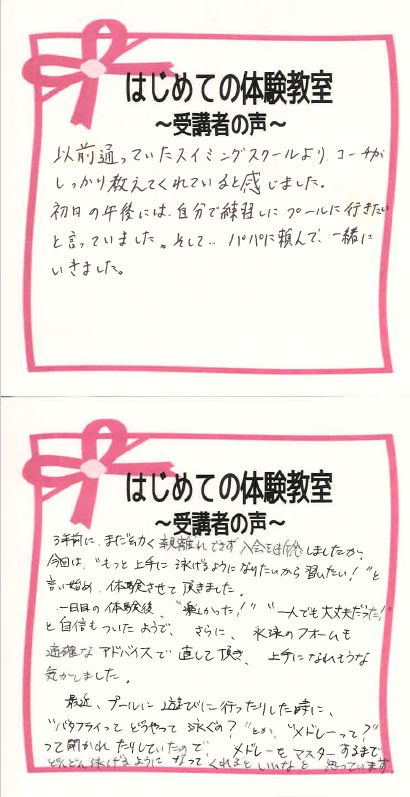 はじめての体験教室
～受講者の声～
以前通っていたスイミングスクールより、コーチが
しっかり教えてくれていると感じました。
初日の午後には、自分で練習しにプールに行きたい
と言っていました。そして…パパに頼んで、一緒に
いきました。
はじめての体験教室
～受講者の声～
3年前に、まだ幼く親離れできず入会を断念しましたが、
今回は、"もっと上手に泳げるようになりたいから習いたい!"と
言い始め、体験させて頂きました。
一日目の体験後、"楽しかった!""一人でも大丈夫だった!"
と自信もついたようで、さらに、水泳のフォームも
適確なアドバイスで直して頂き、上手になれそうな
気がしました。
最近、プールに遊びに行ったりした時に、
"バタフライってどうやって泳ぐの?"とか、"メドレーって?"
って聞かれたりしていたので、メドレーをマスターするまで
どんどん泳げるようになってくれるといいなと思っています。